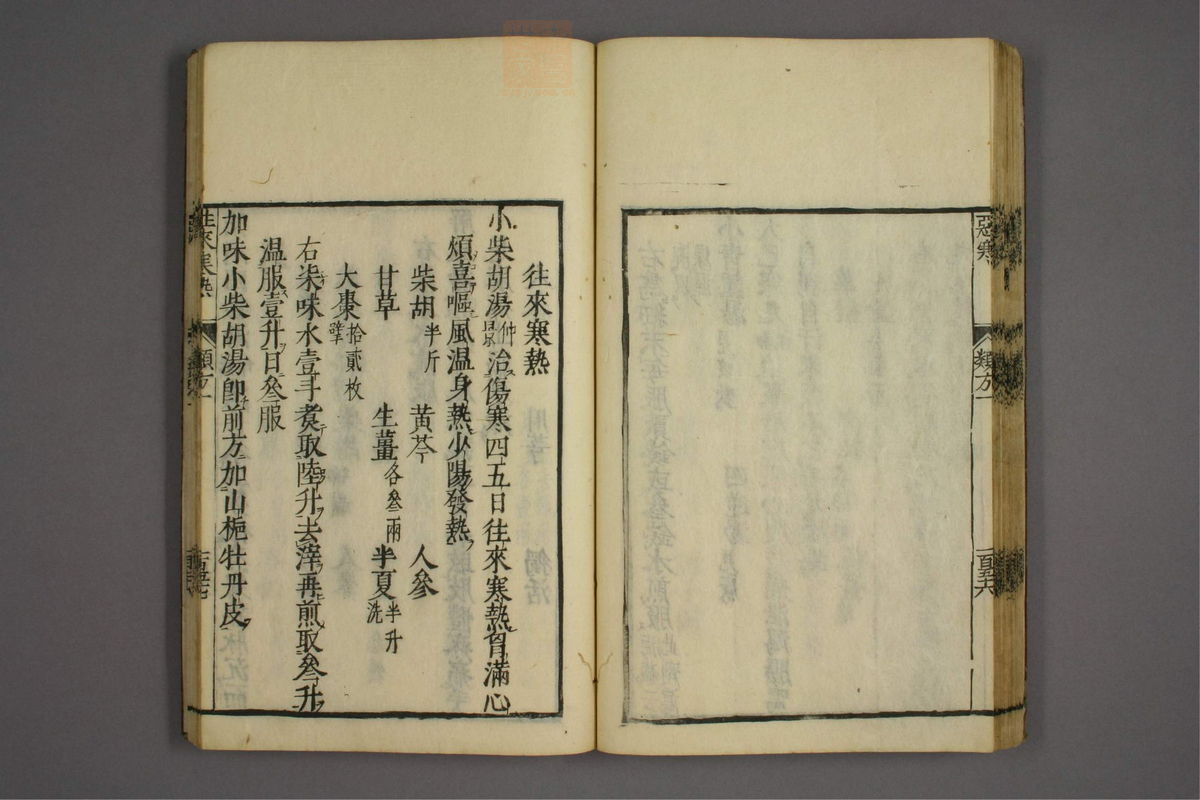 惡寒
類方一
百五十六
往來寒熱
小柴胡湯仲景治傷寒四五日往來寒熱胷滿心
煩喜嘔風温身熱少陽發熱
柴胡半斤 黃芩 人參
甘草 生薑各叄兩 半夏半升洗
大棗拾貳枚擘
右柒味水壹斗煑取陸升去滓再煎取叄升
温服壹升日叄服
加味小柴胡湯即前方加山梔牡丹皮
往來寒熱
類方一